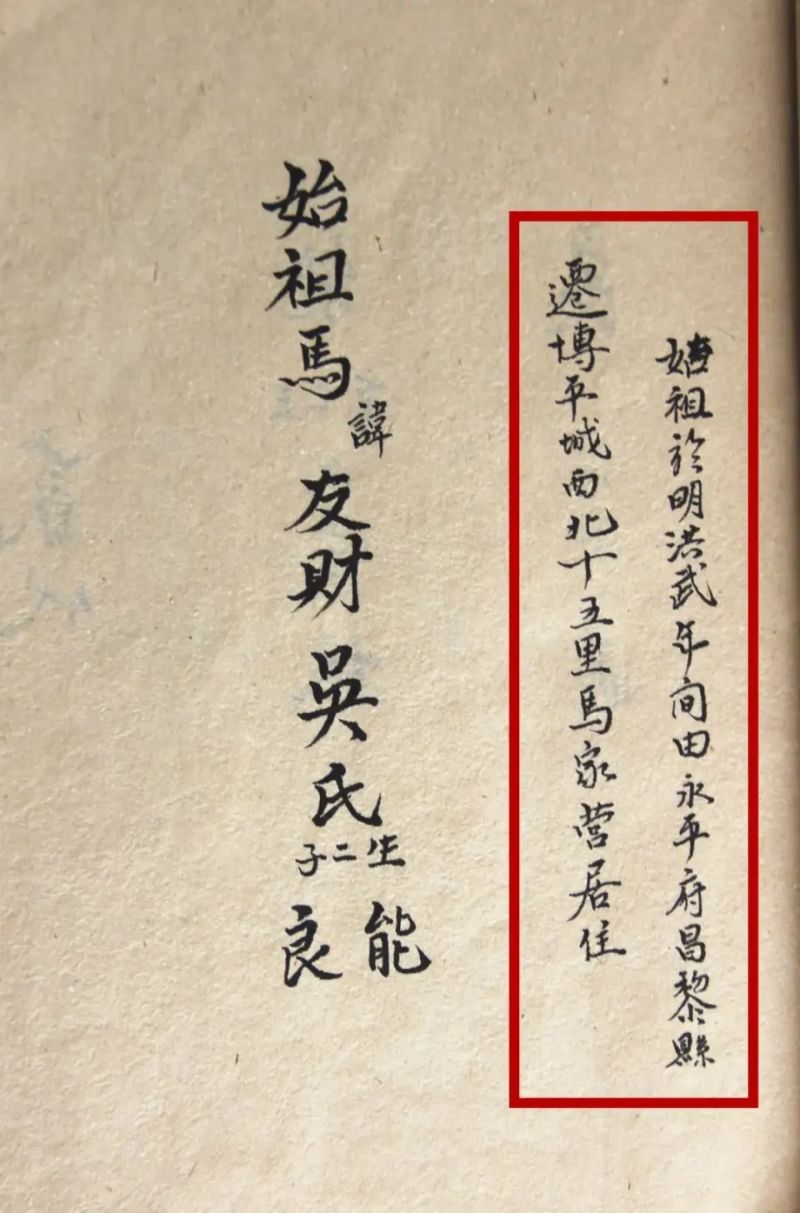 始祖於明洪武年间由永平府昌黎縣
遷博平城西北十五里馬家营居住
始祖馬諱友財吳氏生二子能良